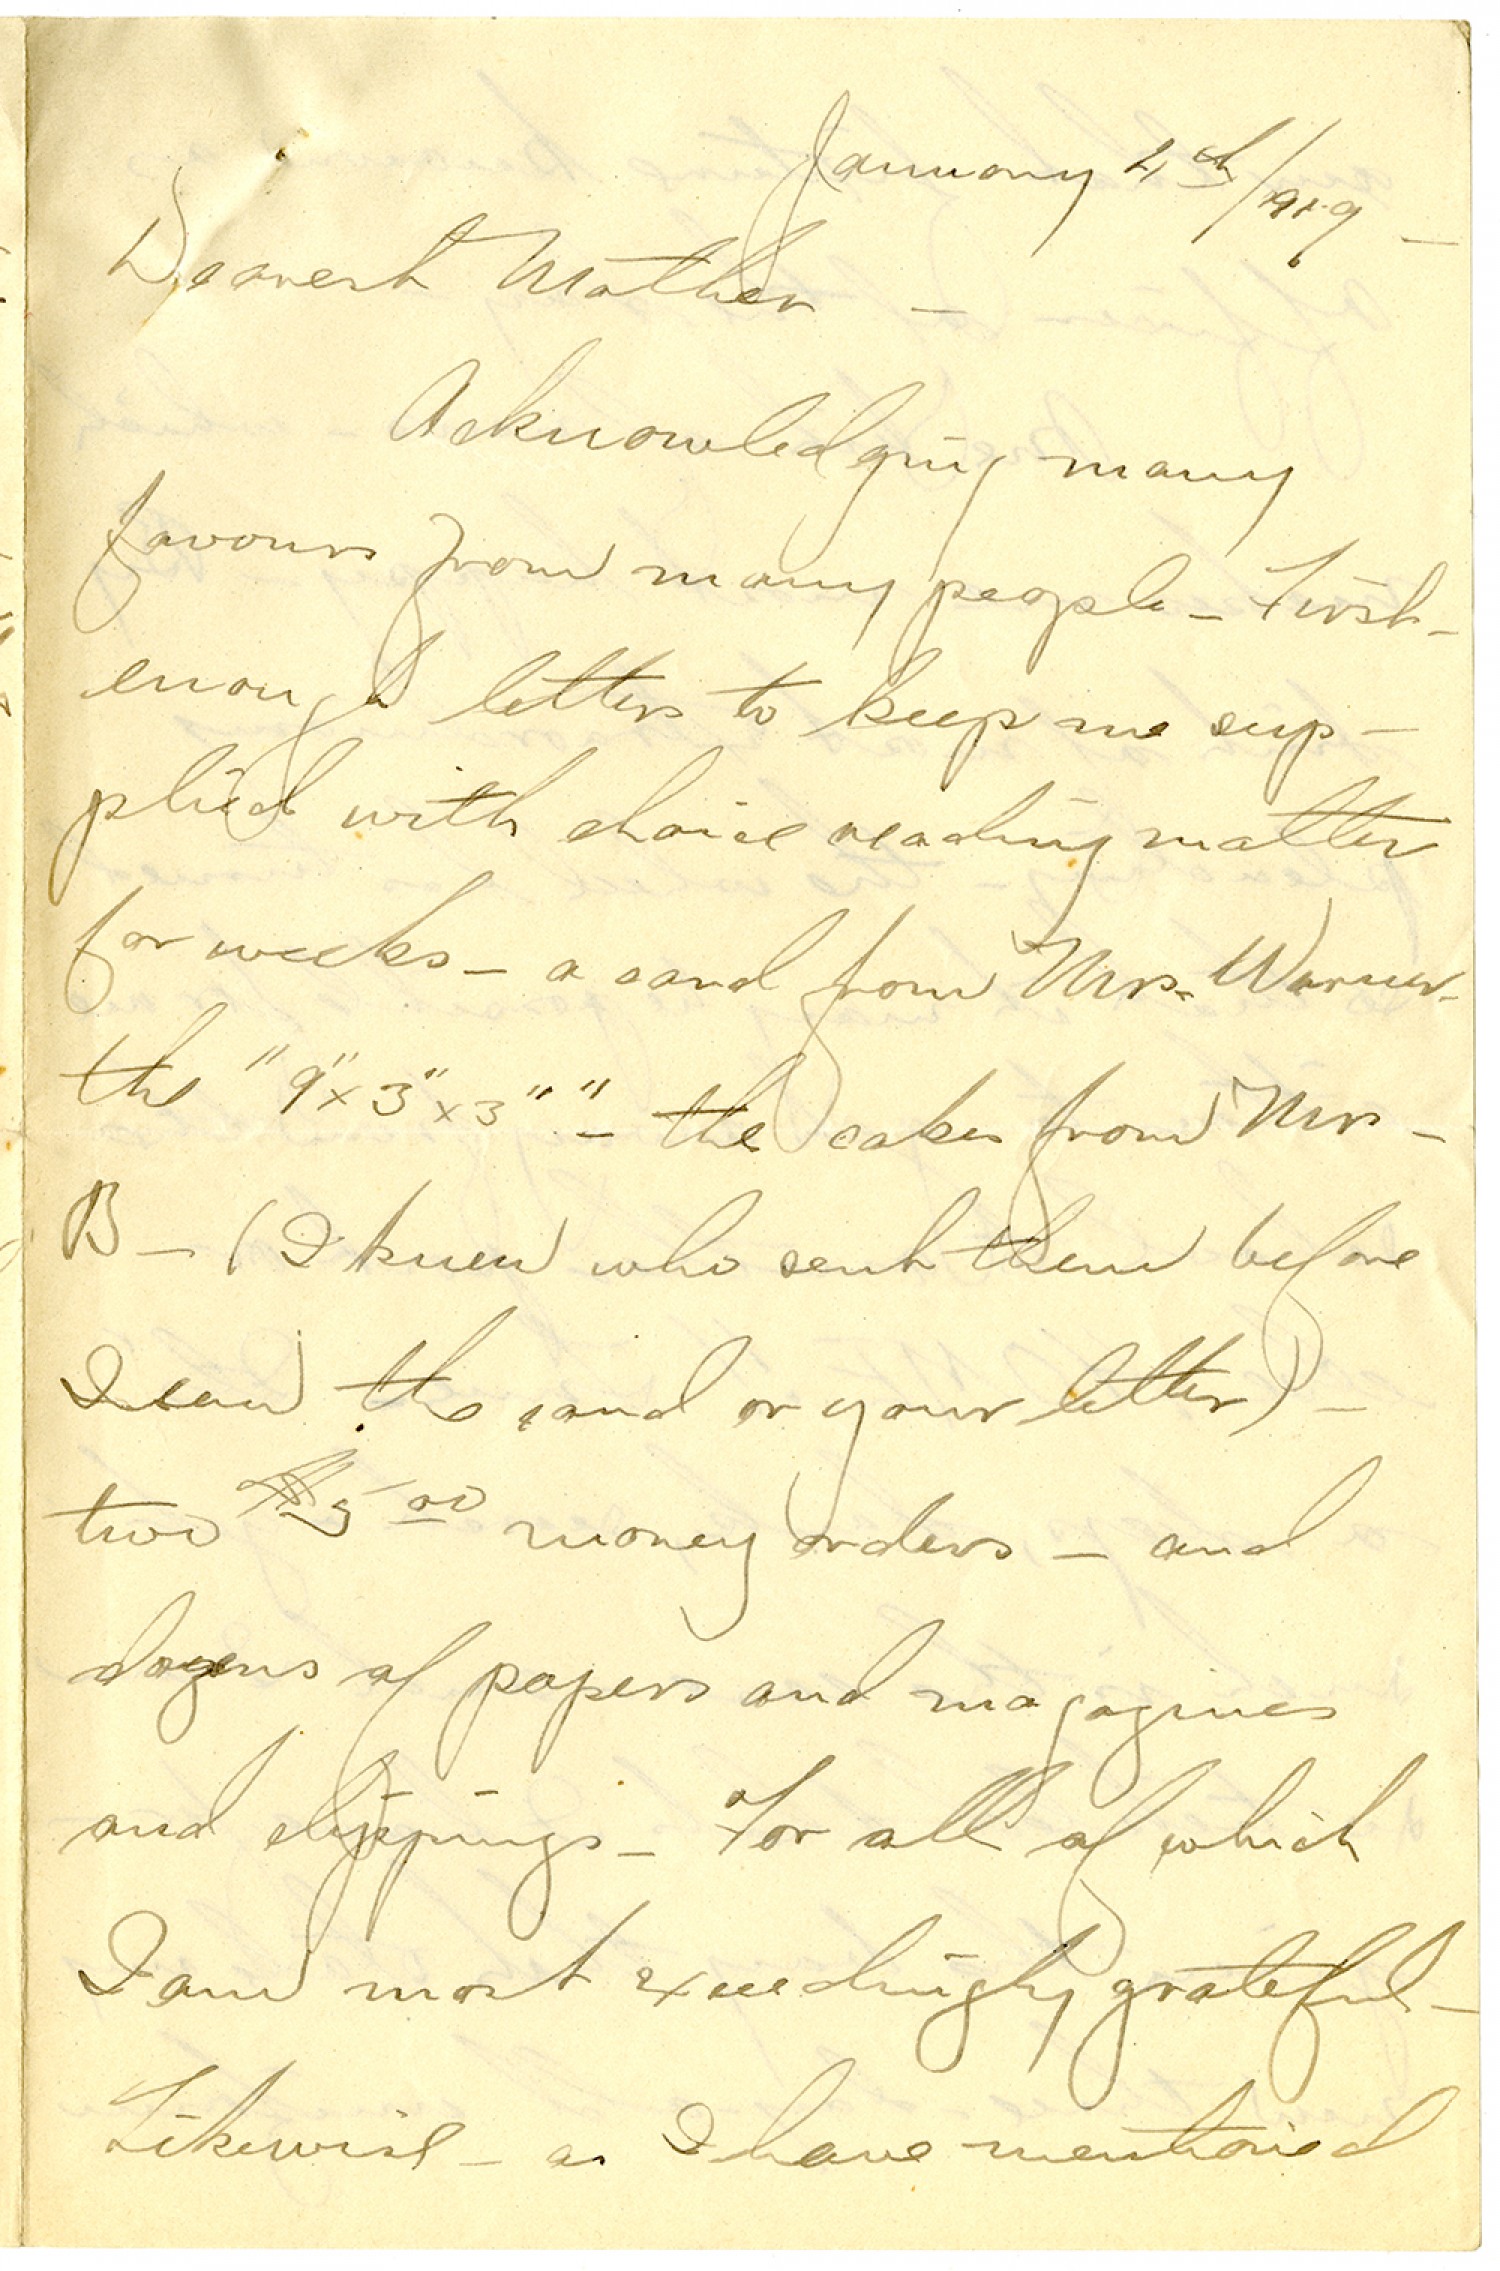 January 4th/1919 –
Dearest Mother –
Acknowledging many
favours from many people – First –
enough letters to keep me sup-
plied with choice reading matter
for weeks – a card from Mrs. Warner –
the "9"x3"x3"" – the cakes from Mrs –
B – (I knew who sent them before
I saw the card or your letter) –
two $5.00 money orders – and
dozens of papers and magazines
and clippings – For all of which
I am most exceedingly grateful –
Likewise – as I have mentioned